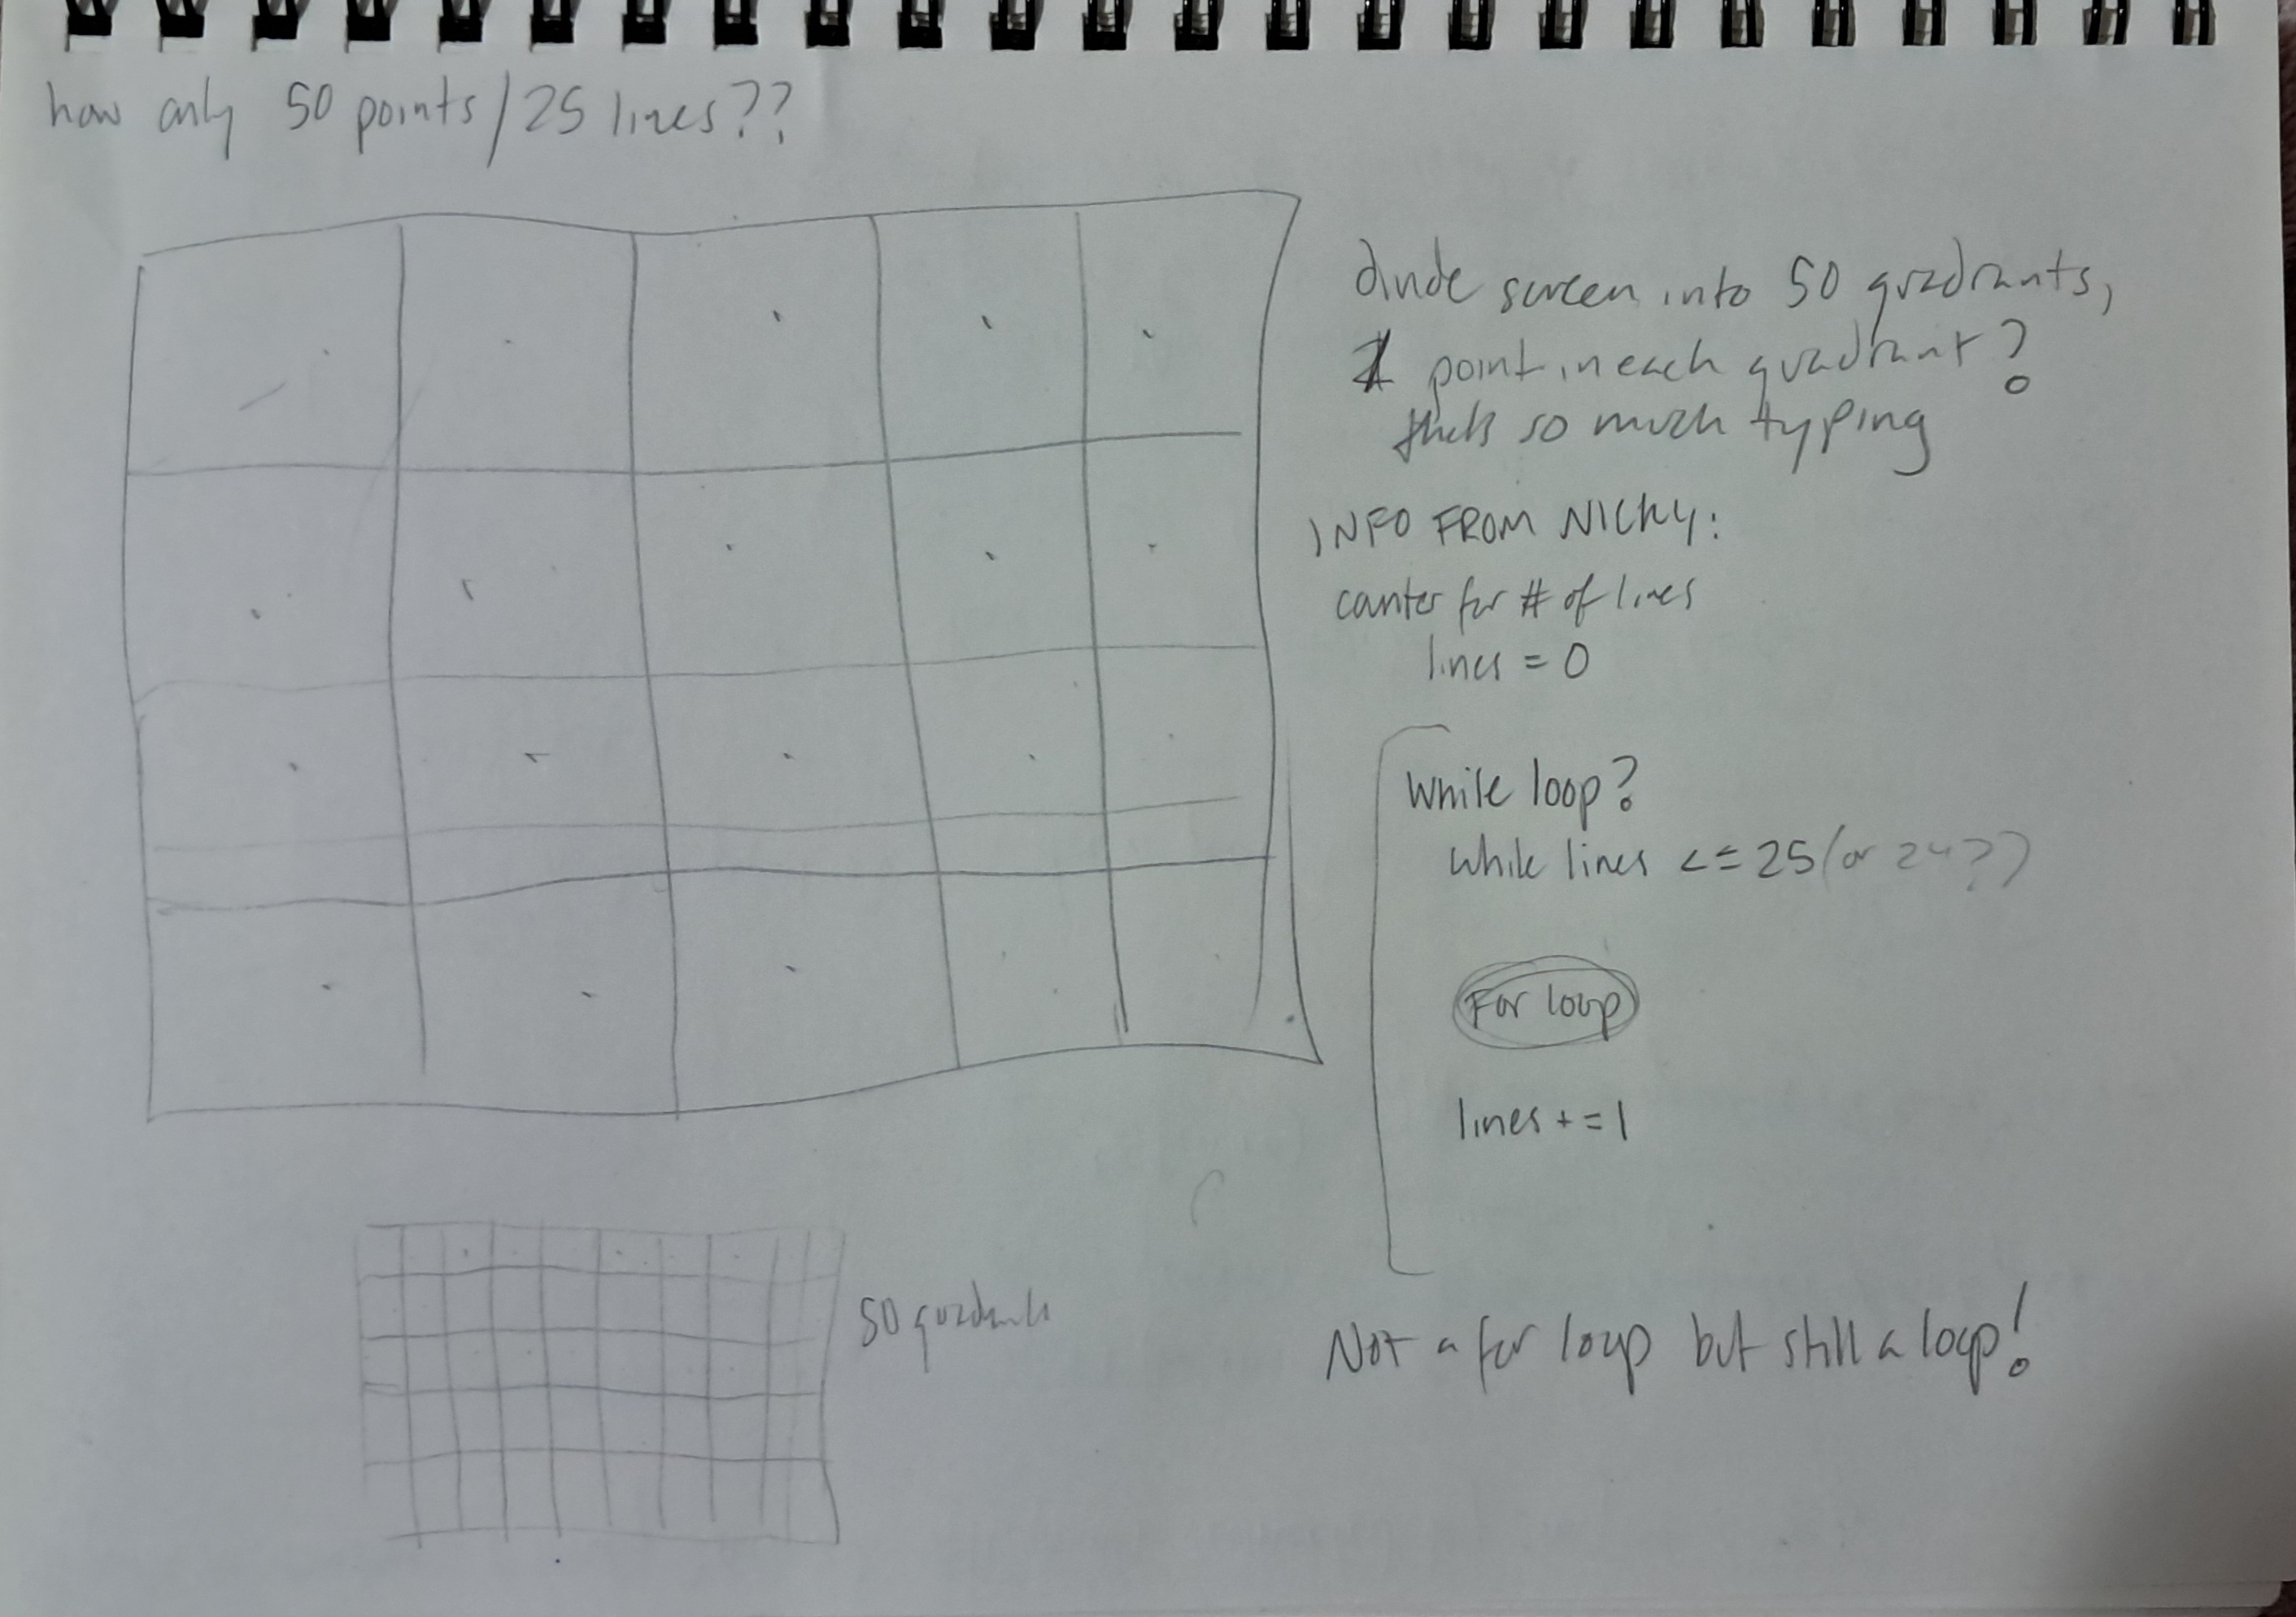 how only 50 points/25 lines??
divide screen into 50 quadrants,
1 point in each quadrant?
thats so much typing
INFO FROM NICKY:
counter for # of lines
lines = 0
While loop?
while lines <= 25 (or 24??)
For loop
lines += 1
50 quadrants
Not a for loop but still a loop!